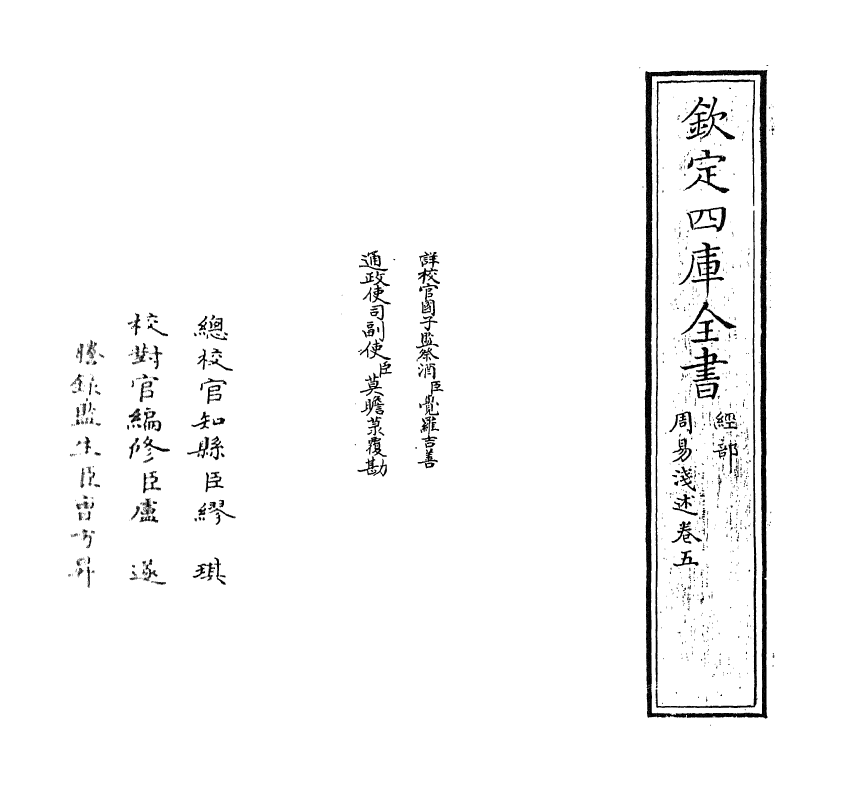 欽定四庫全書
經部
周易淺述卷五
詳校官國子監祭酒臣覺羅吉善
通政使司副使臣莫瞻菉覆勘
總校官知縣臣繆琪
校對官編修臣盧遂
謄錄監生臣曹方昇